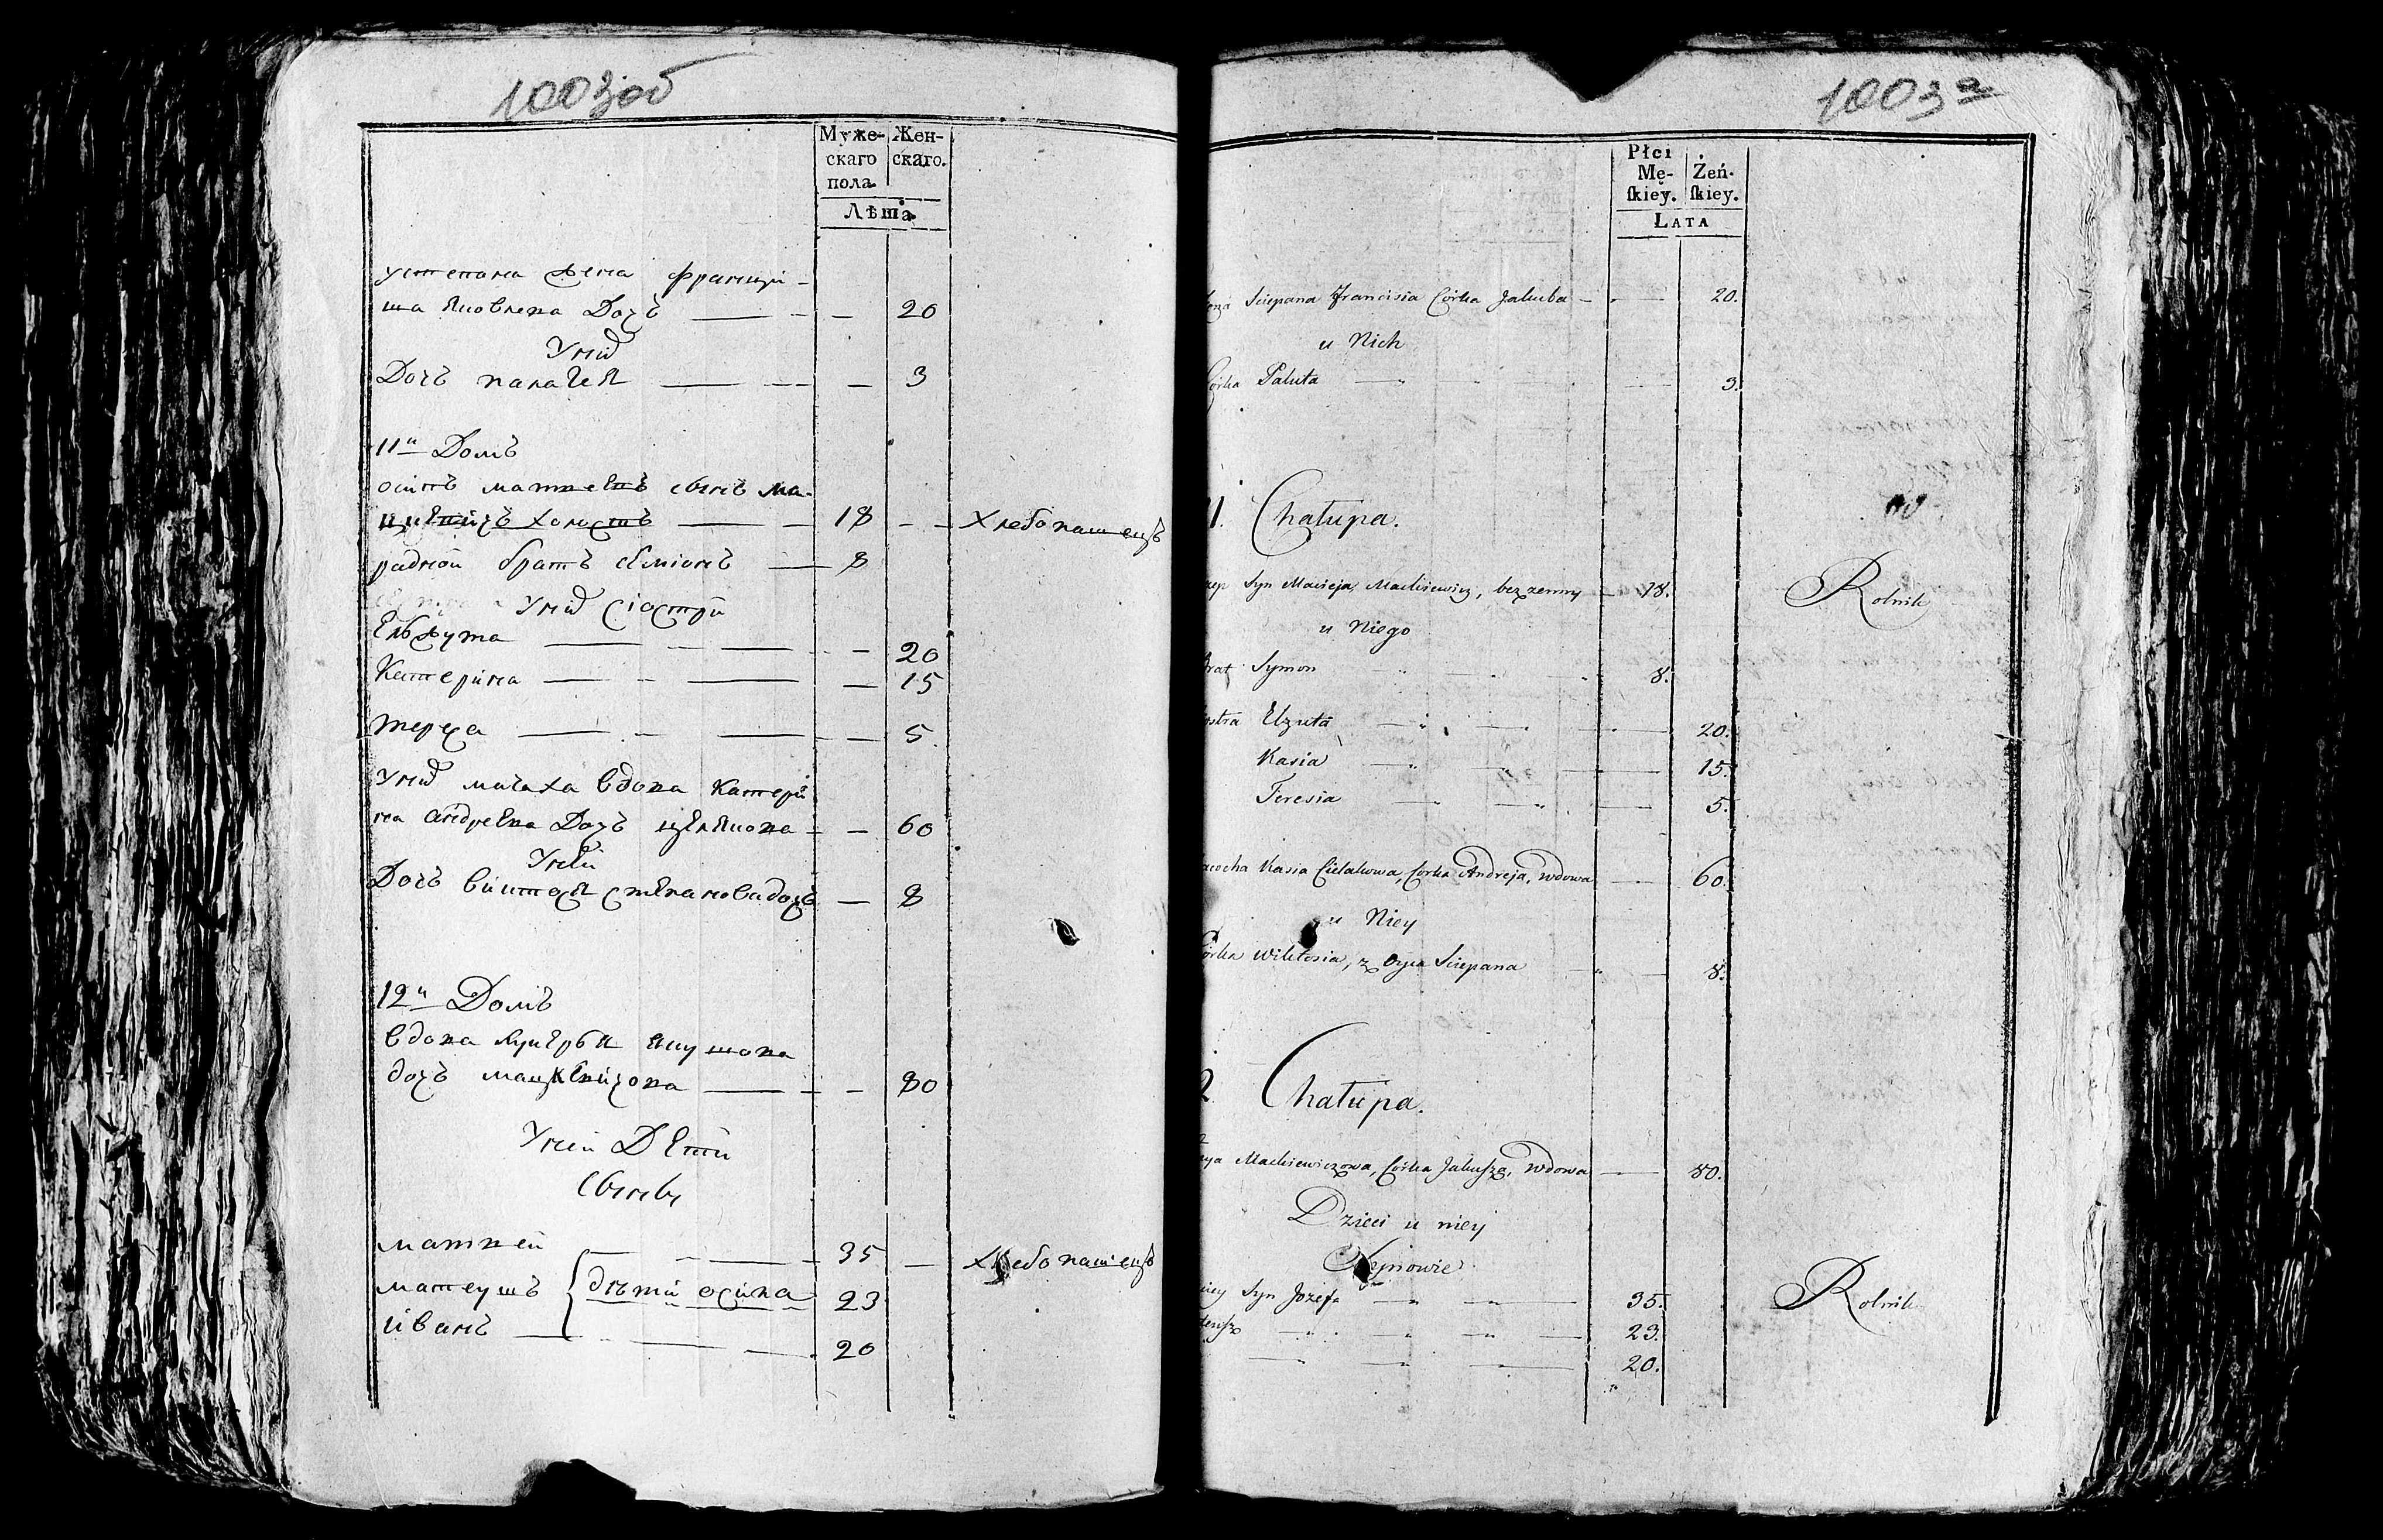 1003об
Муже-
скаго
пола
Жен-
скаго.
Лѣта
устепана жена францы-
ша яковлева Дочъ — — 20
Унид
Дочъ палагея — — 3
11й Домъ
осипъ матвевъ сынъ ма-
цкевичъ холостъ — 18 — — хлебопашецъ
радной братъ семіонъ — 8
Унид сіостры
Елжута — — 20
Катерина — — 15
тереса — — 5
Унид мачаха вдова катери
на андреева Дочъ целякова — — 60
Уней
Дочъ виктося степанова дочъ — 8
12й Домъ
вдова Якушова
дочъ мацкевичова — — 80
Уней Дети
Сыны
матвей — 35 — хлебопашецъ
матеушъ дѣти осипа 23
иванъ — 20
1003а
Płci
Mę-
ſkiey.
Żeń-
ſkiey.
Lata
Sciepana Francisia Córka Jakuba — 20.
u Nich
Córka Paluta — 3.
Chałupa.
Syn Macieja, Mackiewicz, bezzenny — 18. Rolnik
u Niego
Brat Symon — 8.
Elzuta — 20.
Kasia — 15.
Teresia — 5.
Kasia Cielakowa, Córka Andreja, wdowa — 60.
u Niey
Córka Wiktosia, z Oyca Sciepana — 8.
2 Chałupa.
Mackiewiczowa, Córka Jakuſza, wdowa — 80.
Dzieci u niey
Synowie
Syn Jozefa — 35. Rolnik
— 23.
— 20.